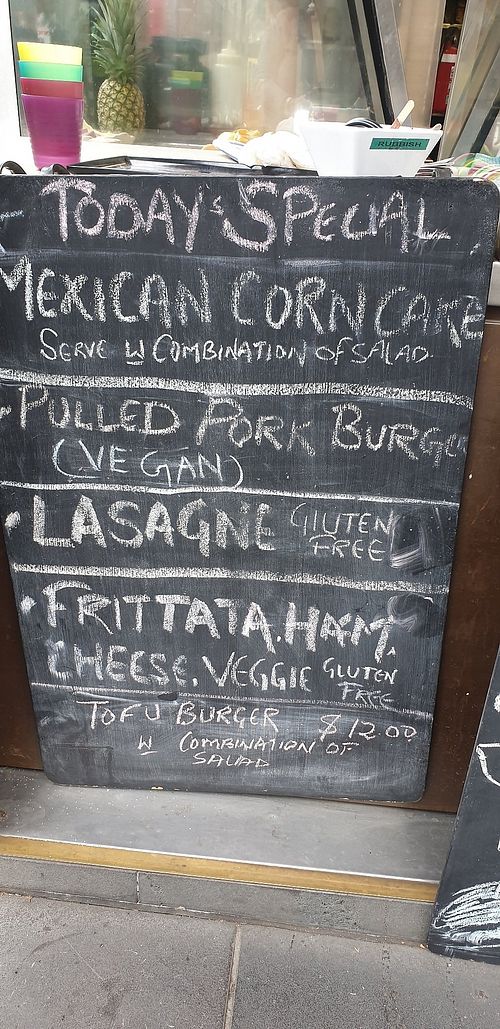 RUBBISH
TODAY'S SPECIAL
MEXICAN CORN CAKE
SERVE W COMBINATION OF SALAD.
PULLED PORK BURGE
(VEGAN)
LASAGNE GLUTEN
FREE
FRITTATA. HAM,
CHEESE. VEGGIE GLUTEN
FREE
TOFU BURGER $12.00
W COMBINATION OF
SALAD